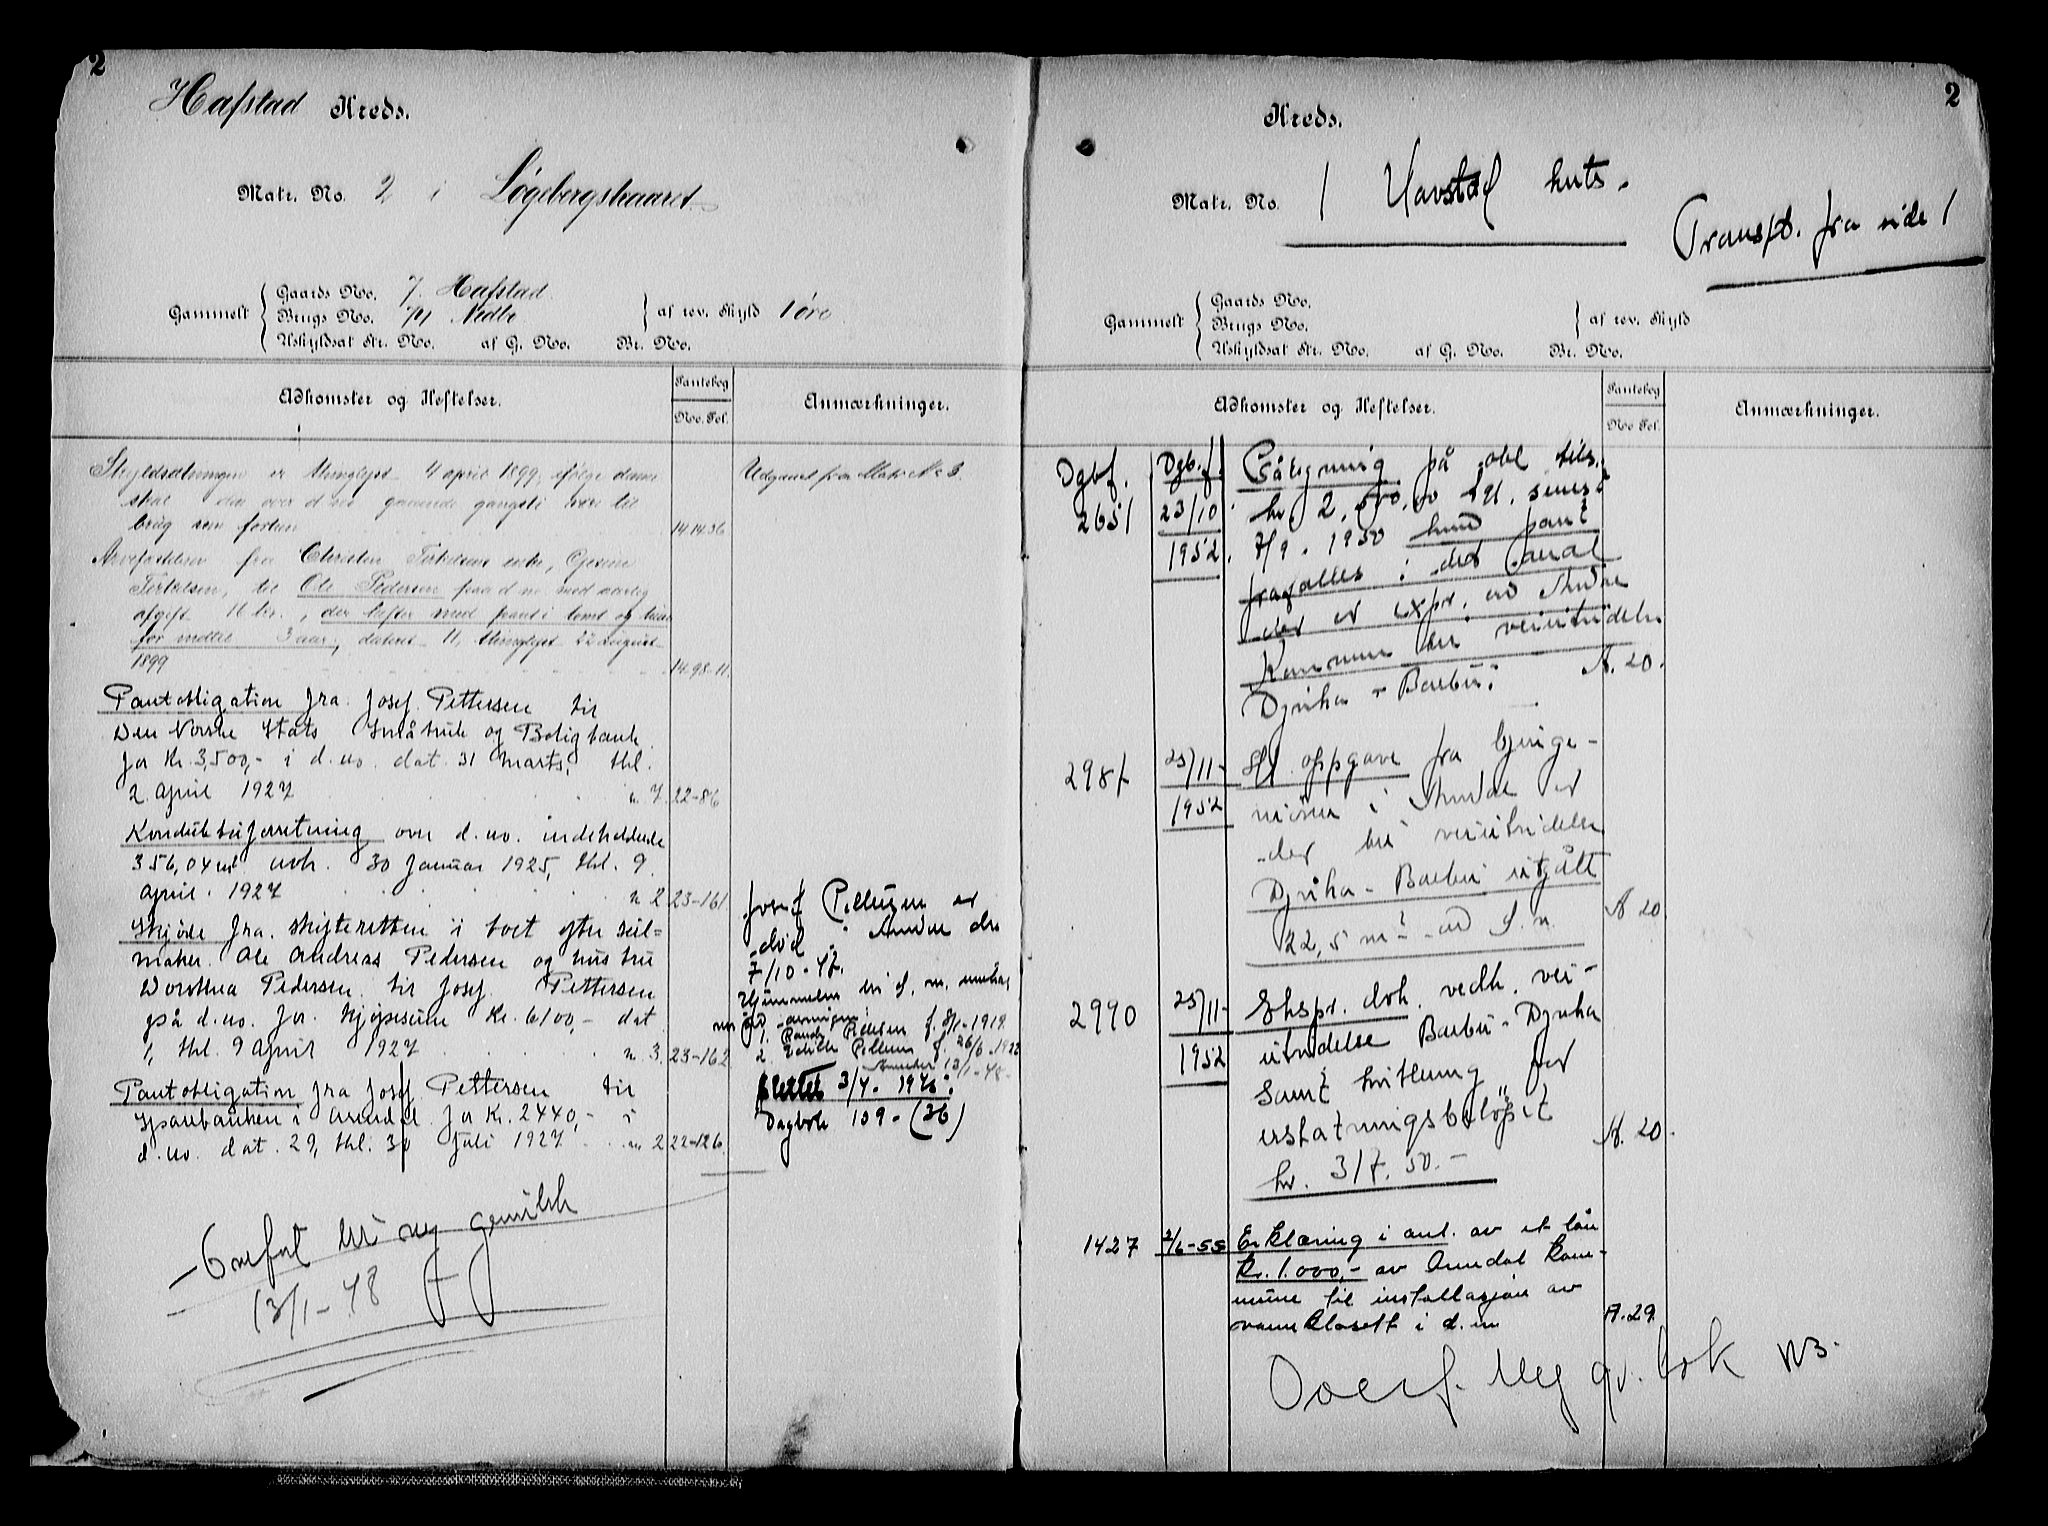 2
Hafstad Kreds.
Matr. No. 2 i Løgebergskaaret
Gaards No. 7. Hafstad
Gammelt Brugs No. Nedbo af rev. Skyld 1 øre
Uskyldsat Str. No. af G. No. Br. No.
Adkomster og Heftelser.
Pantebog
No. Fol.
Anmærkninger.
Skyldsetningen er thinglyst 4 april 1899, ifølge denne
skal den over d no gaaende gangsti være til
brug som forhen 14.14.36
Udgaaet fra Matr No 3.
Arvefæstebrev fra Christen Terkelsens enke, Gesine
Terkelsen, til Ole Pedersen paa d no. med aarlig
afgift 16 kr., der hefter med pant i tomt og huse
for mellei 3 aar, dateret 11, thinglyst 22 august
1899 14-98-11.
Pantobligation fra Josef Pettersen til
Den Norske Stats Småbruk og Boligbank
for Kr. 3,500,- i d. no. dat. 31 marts, thl.
2. april 1927 n. 7. 22-86
Konduktørforretning over d. no. indeholdende
356,04 m² avh. 30 januar 1925, thl. 9.
april. 1927 n 2 23-161
Skjøde fra skifteretten i boet efter seil=
maker Ole Andreas Pedersen og hustru
Dorothea Pedersen til Josef Pettersen
på d. no. for kjøpesum Kr. 6100,- dat
1, thl. 9 april 1927 n. 3. 23-162
Pantobligation fra Josef Pettersen til
Sparebanken i Arendal for Kr. 2440,- i
d. no. dat. 29, thl. 30 juli 1927 n 2 22-126
Josef Pettersen er
død i Arendal den
7/10-47.
Hjemmelen til d. n.
f. 8/1-1919.
2. f. 26/6-1922
Arendal 13/1-48-
slettet 3/4-1946.
Dagbok 109-(36)
Overført til ny
13/1-48
2
Kreds.
Matr. No. 1 Havstad krets.
Transp. fra side 1
Gaards No.
Gammelt Brugs No. af rev. Skyld
Uskyldsat Str. No. af G. No. Br. No.
Adkomster og Heftelser.
Pantebog
No Fol.
Anmærkninger.
Dgbf. Dgb.f. Påtegning på obl tils.
2651 23/10 kr. 2,500,00 tgl. senest
1952. 7/9. 1950 hvis pant
frafalles i det areal
der er expr. av Arendal
Kommune til veiutvidelse
Dyvika - Barbu. A. 20.
2987 25/11- oppgave fra
1952 i Arendal
der til veiutvidelse
Dyvika - Barbu utgått
22,5 m² av d. n. A 20
2990 25/11- Ekspr. dok. vedk. vei-
1952 utvidelse Barbu - Dyvika
samt kvittering for
erstatningsbeløpet
kr. 317.50.- A. 20
1427 2/6-55 Erklæring i anl. av et lån
kr. 1.000,- av Arendal Kom-
mune til installasjon av
vannklosett i d. n A. 29.
Overf. Ny gr. bok N3.